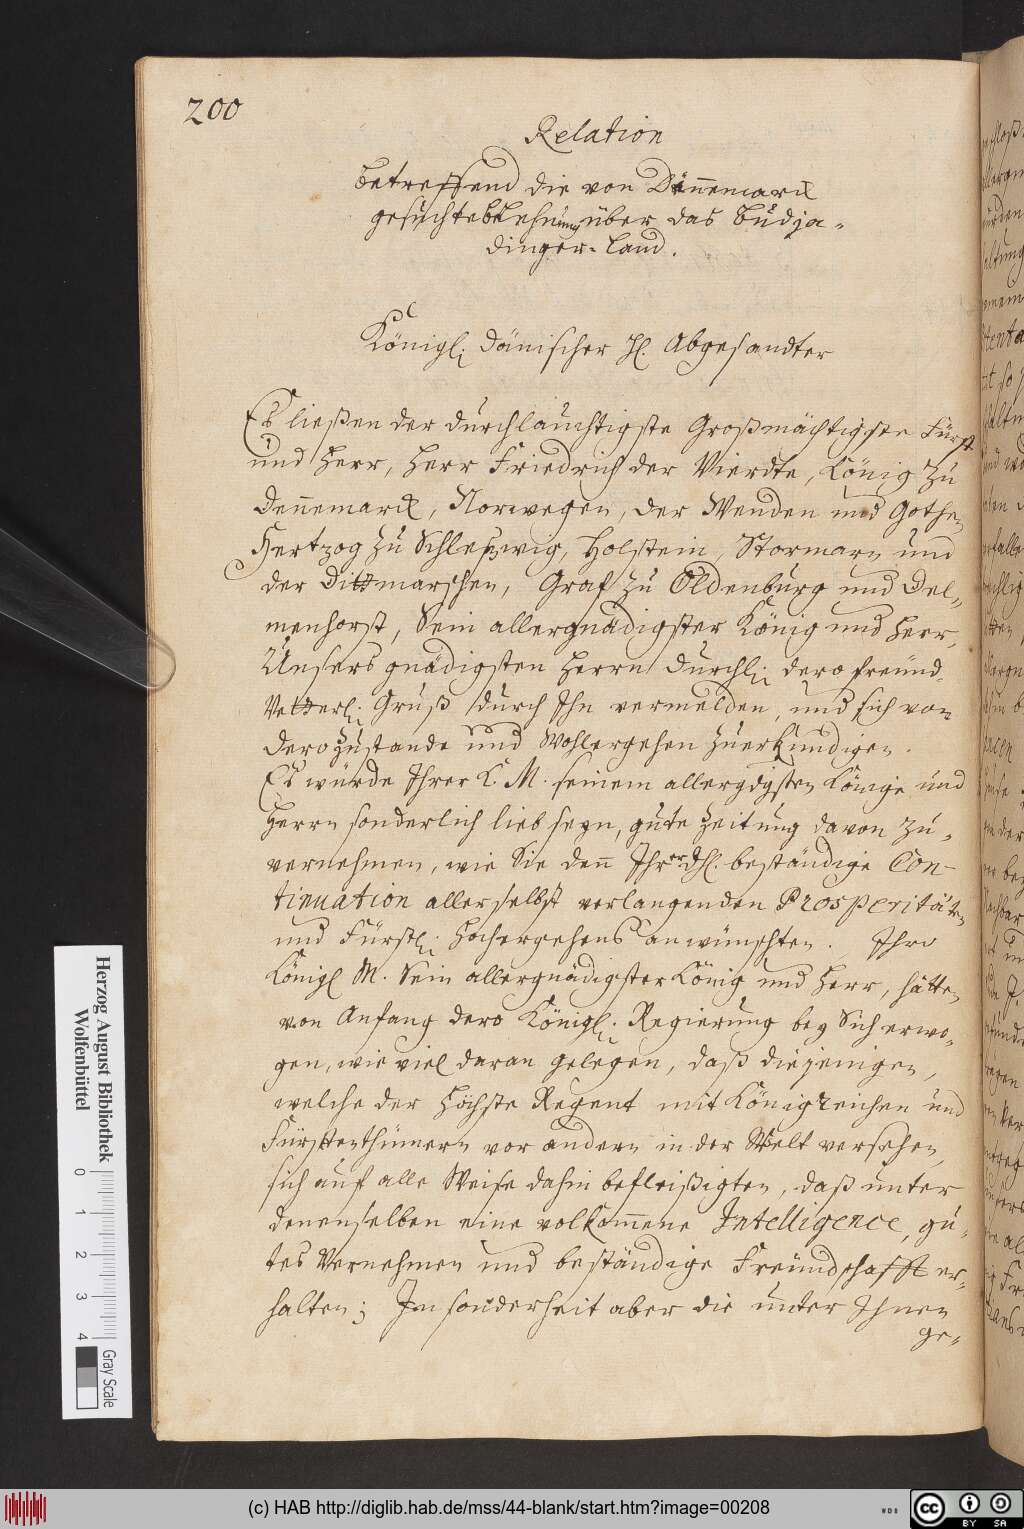 200
Relation
betreffend die von Dännemarck
gesuchte Belehnung über das Budja-
dinger-Land.
Königl: Dänischer H. Abgesandter
Es ließen der durchläuchtigste Großmächtigste Fürst
und Herr, Herr Friedrich der Vierdte, König zu
Dennemarck, Norwegen, der Wenden und Gothen
Hertzog zu Schleßwig, Holstein, Stormarn und
der Dittmarschen, Graf zu Oldenburg und Del-
menhorst, Sein allergnädigster König und Herr,
Unsers gnädigsten Herrn Durchl: dero freünd-
Vetterl: Gruß durch Ihn vermelden, und sich von
dero Zustande und Wohlergehen zuerkundigen.
Es würde Ihrer K. M. seinem allergdgsten Könige und
Herrn sonderlich lieb seyn, gute Zeitung davon zu-
vernehmen, wie Sie denn Ihrer dhl. beständige Con-
tinuation allerselbst verlangenden Prosperitäten
und Fürstl: Hochergehens anwünschten. Ihro
Königl M. Sein allergnädigster König und Herr, hätten
von Anfang dero Königl: Regierung bey Sich erwo-
gen, wie viel daran gelegen, daß diejenigen,
welche der Höchste Regent mit Königreichen und
Fürstenthümern vor andern in der Welt versehen,
sich auf alle Weise dahin befleißigten, daß unter
denenselben eine volkommene Intelligence, gu-
tes Vernehmen und beständige Freündschafft er-
halten; Insonderheit aber die unter Ihnen
ge-
Herzog August Bibliothek
Wolfenbüttel
0 1 2 3 4
Gray Scale
(c) HAB http://diglib.hab.de/mss/44-blank/start.htm?image=00208
WDB
cc BY SA